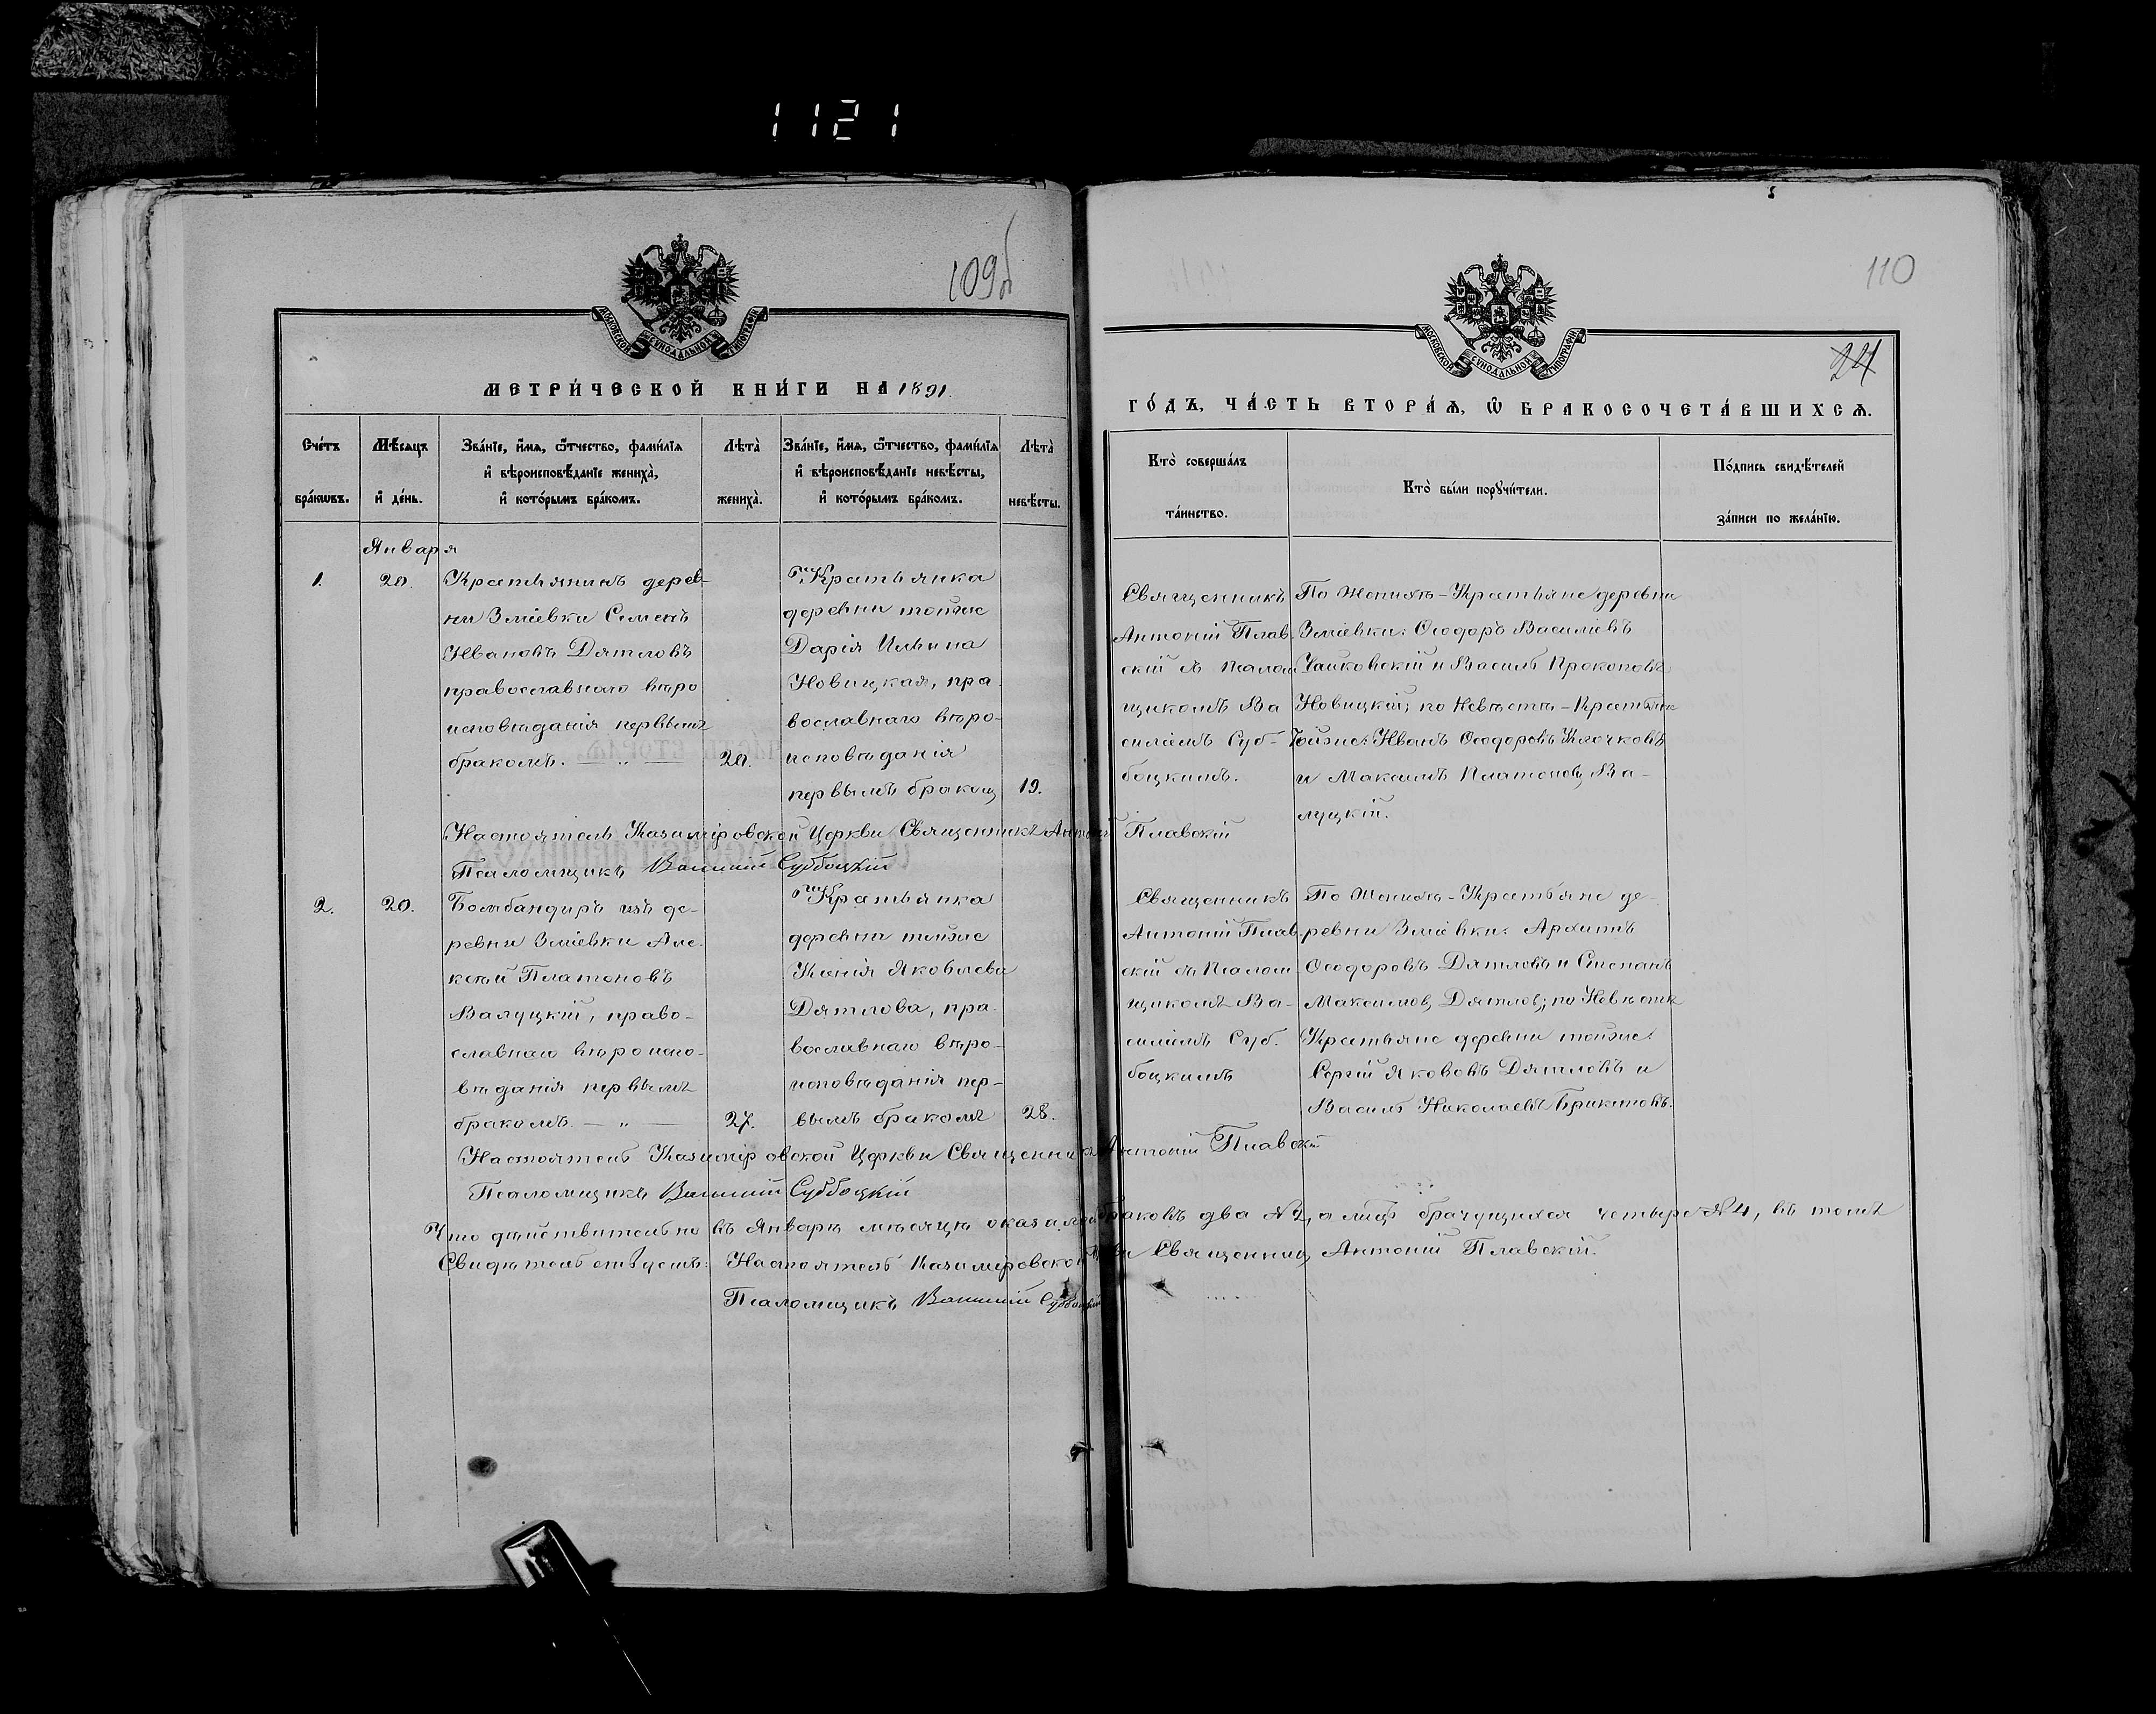 1121
109об
МОСКОВСКОЙ СѴНОДАЛЬНОЙ ТИПОГРАФІИ
МЕТРИ́ЧЕСКОЙ КНИ́ГИ НА 1891.
Сче́тъ бра́кѡвъ.
Мѣ́сяцъ и҆ де́нь.
Зва́нїе, и҆́мѧ, ѻ҆́тчество, фами́лїѧ и҆ вѣроисповѣ́данїе жениха̀, и҆ кото́рымъ бра́комъ.
Лѣта̀ жениха̀.
Зва́нїе, и҆́мѧ, ѻ҆́тчество, фами́лїѧ и҆ вѣроисповѣ́данїе невѣ́сты, и҆ кото́рымъ бра́комъ.
Лѣта̀ невѣ́сты.
Января
1. 20.
Крестьянинъ дерев-
ни Зміевки Семенъ
Ивановъ Дятловъ
православнаго вѣро
исповѣданія первымъ
бракомъ. — „ —
20.
Крестьянка
деревни тойже
Дарія Ильина
Новицкая, пра-
вославнаго вѣро-
исповѣданія
первымъ бракомъ
19.
Настоятель Казиміровской Церкви Священникъ Антоній Плавскій
Псаломщикъ Василій Субботскій
2. 20.
Бомбандиръ изъ де-
ревни Зміевки Але-
ксѣй Платоновъ
Валуцкій, право-
славнаго вѣроиспо-
вѣданія первымъ
бракомъ. — „ —
27.
Крестьянка
деревни тойже
Ксенія Яковлева
Дятлова, пра-
вославнаго вѣро-
исповѣданія пер-
вымъ бракомъ
28.
Настоятель Казиміровской Церкви Священникъ Антоній Плавскій
Псаломщикъ Василій Субботскій
Что дѣйствительно въ Январѣ мѣсяцѣ оказалось браковъ два № 2, а лицъ брачущихся четыре № 4, въ томъ
Свидѣтельствуемъ: Настоятель Казиміровской Церкви Священникъ Антоній Плавскій.
Псаломщикъ Василій Субботскій
110
24
МОСКОВСКОЙ СѴНОДАЛЬНОЙ ТИПОГРАФІИ
ГО́ДЪ, ЧА́СТЬ ВТОРА́Ѧ, Ѽ БРАКОСОЧЕТА́ВШИХСѦ.
Кто̀ соверша́лъ та́инство.
Кто̀ бы́ли порꙋчи́тели.
По́дпись свидѣ́телей за́писи по жела́нїю.
Священникъ
Антоній Плав-
скій съ Псалом
щикомъ Ва
силіемъ Суб-
боцкимъ.
По Женихѣ - Крестьяне деревни
Зміевки: Ѳеодоръ Василіевъ
Чайковскій и Василь Прокоповъ
Новицкій; по Невѣстѣ - Крестьяне
тойже: Иванъ Ѳеодоровъ Клочковъ
и Максимъ Платоновъ Ва-
луцкій.
Священникъ
Антоній Плав-
скій съ Псалом-
щикомъ Ва-
силіемъ Суб-
боцкимъ
По Женихѣ - Крестьяне де-
ревни Зміевки: Архипъ
Ѳеодоровъ Дятловъ и Степанъ
Максимовъ Дятловъ; по Невѣстѣ
Крестьяне деревни тойже:
Сергій Якововъ Дятловъ и
Василь Николаевъ Брикетовъ.